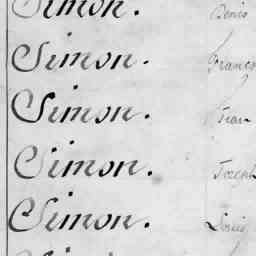 Simon. Denis
Simon. Franço
Simon. Jean
Simon. Joseph
Simon. Louis